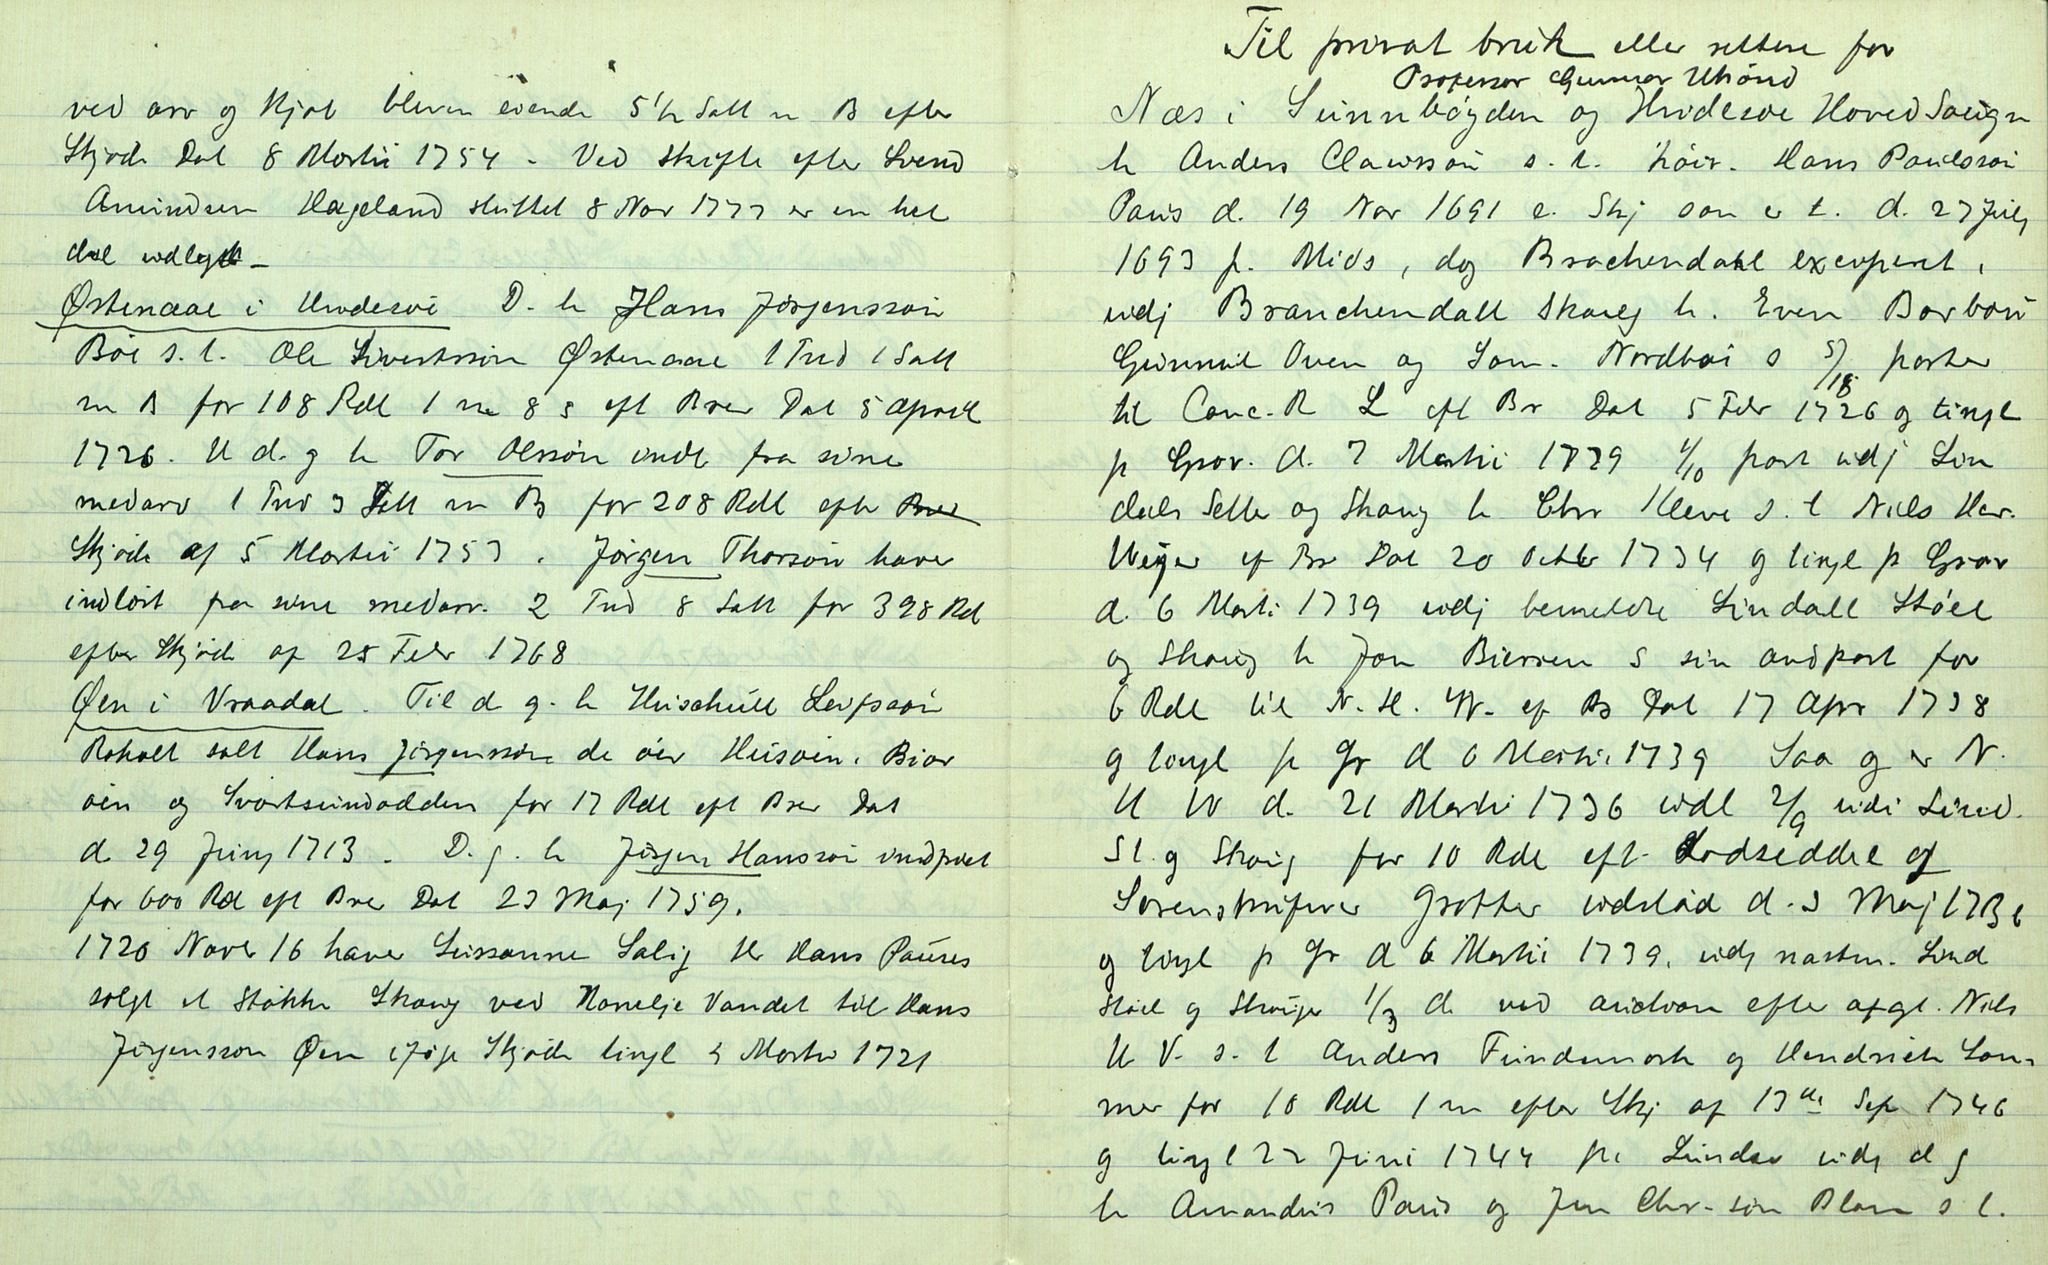 ved arv og kjøb bleven eiende 5½ Sett m B efter
Skjøde Dat 8 Martii 1754 - Ved skifte efter Svend
Amundsen Hageland sluttet 8 Nov 1777 er en hel
del udlagt -
Østenaae i Hvidesøe D. h Hans Jørgenssøn
Bøe s. t. Ole Sivertssøn Østenaae 1 Tnd 1 Sett
m B for 108 Rdl 1 m 8 s eft Brev Dat 5 April
1726. U d. g h Tor Olssøn indl fra sine
medarv 1 Tnd 3 Sett m B for 208 Rdl efter Brev
Skjøde af 5 Martii 1753. Jørgen Thorsøn haver
indløst fra sine medarv. 2 Tnd 8 Sett for 398 Rd
efter Skjøde af 25 Febr 1768
Øen i Vraadal. Til d g. h Leifssøn
Roholt solt Hans Jørgenssøn de øer Husøen, Bior
øen og Svartsundodden for 17 Rdl eft Brev Dat
d. 29 Juny 1713. D. g. h Jørgen Hanssøn
for 600 Rdl eft Brev Dat 23 Maj 1759.
1720 Novr 16 haver Sussanne Salig Hr Hans Pauses
solgt et støkke Skoug ved Vandet til Hans
Jørgenssøn Øen Skjøde tingl Martii 1721
Til privat bruk eller rettere for
Professor Gunnar
Næs i Sunnbøgden og Hvidesøe Hoved Sougn
h Anders Clawssøn s. t. Hans Poulssøn
Paus d. 19 Nov 1691 e. Skj som e t. d. 27 July
1693 p. Mids, dog Brachendahl exciperet,
udj Branchendall Skoug h. Even Barbou
Gunnul Oven og Sam. Nordbøi s 5/18 parter
til Canc. R L eft Br Dat 5 Febr 1726 og tingl
p Grav. d. 7 Martii 1729 1/10 part udj Lin
dals Setter og Skoug h Chr Kleve s. t Niels Her.
Weyer ef Br Dat 20 Octbr 1734 g tingl p Grav
d. 6 Marti 1739 udj bemeldte Lindall Støel
og Skoug h Jon Biersen S sin andpart for
6 Rdl til N. H. W. ef Br Dat 17 Apr 1738
g tingl p Gr d 6 Martii 1739 Saa g er N.
H W d. 21 Martii 1736 udl 2/9 udi Lind.
St. g Skoug for 10 Rdl eft. Lodseddel af
Sorenskriver Grotter udsted d. 3 Maj 1736
g tingl p Gr d 6 Martii 1739. udj næstm. Lind
støel g Skouger 1/3 d. ved auction efter afgl. Niels
H V. s. t Anders Fundemark og Hendrich Lam-
mer for 10 Rdl 1 m efter Skj af 13 de Sep 1746
g tingl 22 Juni 1744 udj d g
h Amandus Paus og Jen Chr.søn Blom s t.